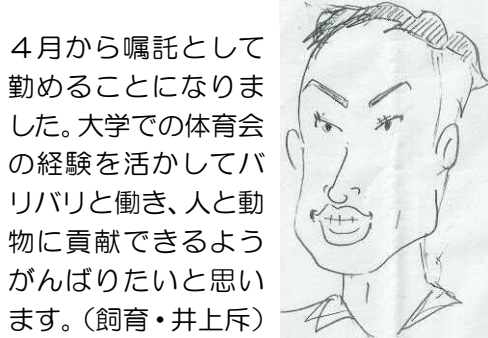 ４月から嘱託として
勤めることになりま
した。大学での体育会
の経験を活かしてバ
リバリと働き、人と動
物に貢献できるよう
がんばりたいと思い
ます。（飼育・井上斥）